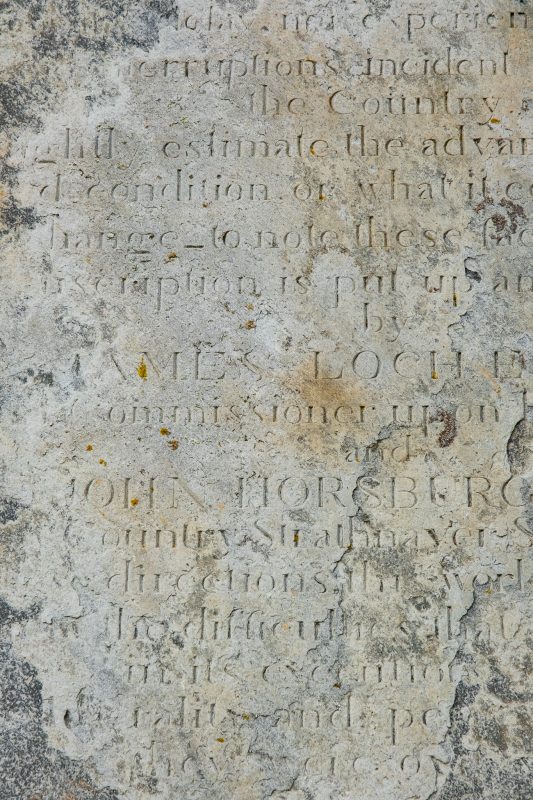 delay, nor experien
erruptions incident
the Country,
ightly estimate the advan
d condition, or what it co
hange — to note these fac
nscription is put up an
by
JAMES LOCH E
ommissioner upon
and
JOHN HORSBURG
Country Strathnaver S
directions, the work
the difficulties that
in its execution
rality and pe
they were o